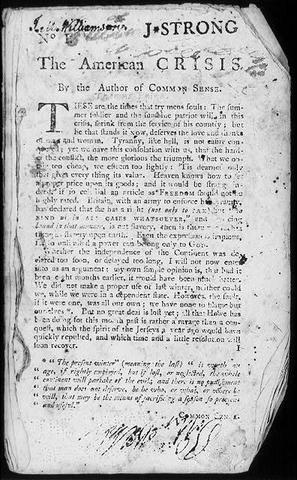 Williamson
J. STRONG
No
The American CRISIS.
By the Author of COMMON SENSE.
THESE are the times that try mens souls: The sum-
mer soldier and the sunshine patriot will, in this
crisis, shrink from the service of his country; but
he that stands it Now, deserves the love and thanks
of man and woman. Tyranny, like hell, is not easily con-
quered; yet we have this consolation with us, that the harder
the conflict, the more glorious the triumph. What we ob-
tain too cheap, we esteem too lightly: 'Tis dearness only
that gives every thing its value. Heaven knows how to set
a proper price upon its goods; and it would be strange in-
deed, if so celestial an article as FREEDOM should not be
highly rated. Britain, with an army to enforce her tyranny,
has declared that she has a right (not only to TAX) but "to
BIND us in ALL CASES WHATSOEVER," and if being
bound in that manner, is not slavery, then is there not such a
thing as slavery upon earth. Even the expression is impious,
for so unlimited a power can belong only to GOD.
Whether the Independence of the Continent was de-
clared too soon, or delayed too long, I will not now enter
into as an argument; my own simple opinion is, that had it
been eight months earlier, it would have been much better.
We did not make a proper use of last winter, neither could
we, while we were in a dependent state. However, the fault,
if it were one, was all our own; we have none to blame but
ourselves*. But no great deal is lost yet; all that Howe has
been doing for this month past is rather a ravage than a con-
quest, which the spirit of the Jerseys a year ago would have
quickly repulsed, and which time and a little resolution will
soon recover.
* "The present winter" (meaning the last) "is worth an
age, if rightly employed, but if lost, or neglected, the whole
continent will partake of the evil; and there is no punishment
that man does not deserve, be he who, or what, or where he
will, that may be the means of sacrificing a season so precious
and useful."
COMMON SENSE.